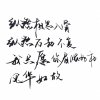 纵然相思入骨
纵然万劫不复
我愿你眉眼如初
风华如故